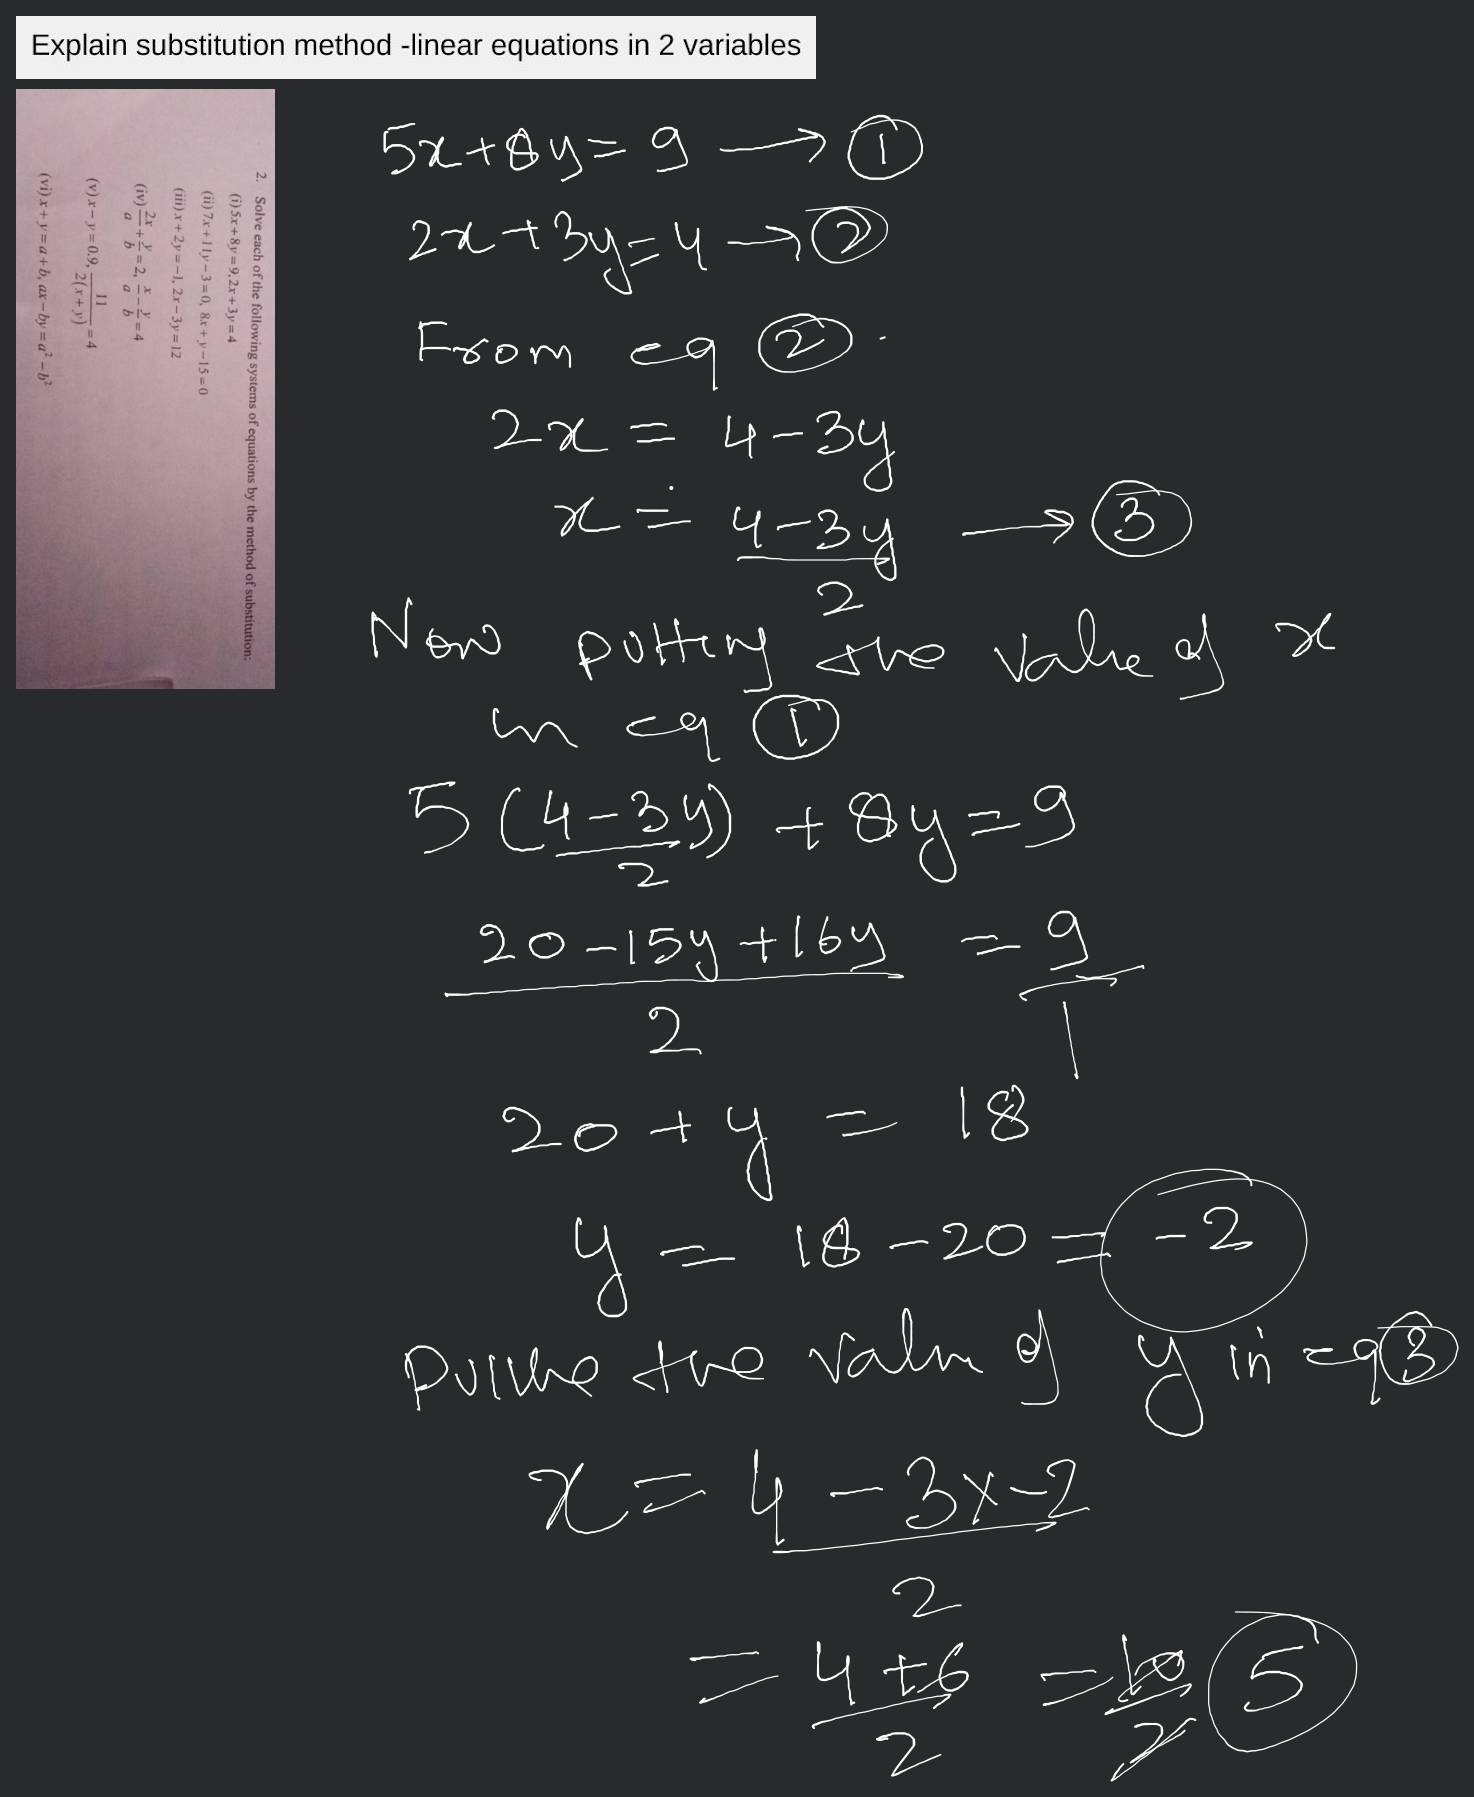 Explain substitution method -linear equations in 2 variables
2. Solve each of the following systems of equations by the method of substitution:
(i) 5x+8y=9, 2x+3y=4
(ii) 7x+11y-3=0, 8x+y-15=0
(iii) x+2y=-1, 2x-3y=12
(iv) 2x/a + y/b = 2, x/a - y/b = 4
(v) x-y=0.9, 11/2(x+y) = 4
(vi) x+y=a+b, ax-by=a²-b²
5x+8y=9 → ①
2x+3y=4 → ②
From eq ②
2x = 4-3y
x = 4-3y/2 → ③
Now putting the value of x
in eq ①
5(4-3y)/2 + 8y=9
20-15y+16y/2 = 9/1
20+y = 18
y = 18-20 = -2
the value of y in eq ③
x = 4-3x-2/2
= 4+6/2 = 10/2 5